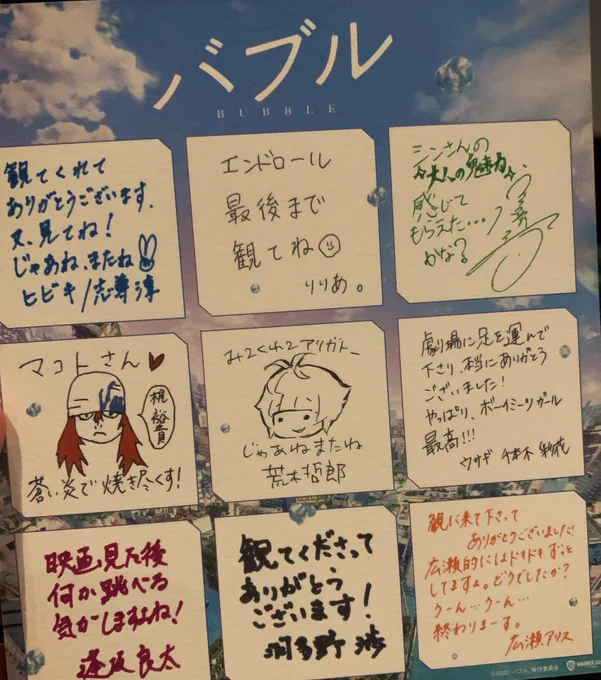 バブル
BUBBLE
観てくれて
ありがとうございます.
又、見てね!
じゃあね、またね
ヒビキ/志尊淳
エンドロール
最後まで
観てね
りりあ。
ニンさんの
大人の魅力
感じて
もらえた…
かな?
マコトさん
梶裕貴
蒼い炎で焼き尽くす!
みてくれてアリガトー
じゃあねまたね
荒木哲郎
劇場に足を運んで
下さり本当にありがとう
ございました!
やっぱり、ボーイミーツガール
最高!!!
ウサギ 千本木彩花
映画見た後
何か跳べる
気がしますよね!
逢坂良太
観てくださって
ありがとう
ございます!
羽多野渉
観に来て下さって
ありがとうございました!
広瀬的にはドキドキずっと
してますよ。どうでしたか?
うーん…うーん…
終わりまーす。
広瀬アリス
©2022「バブル」製作委員会